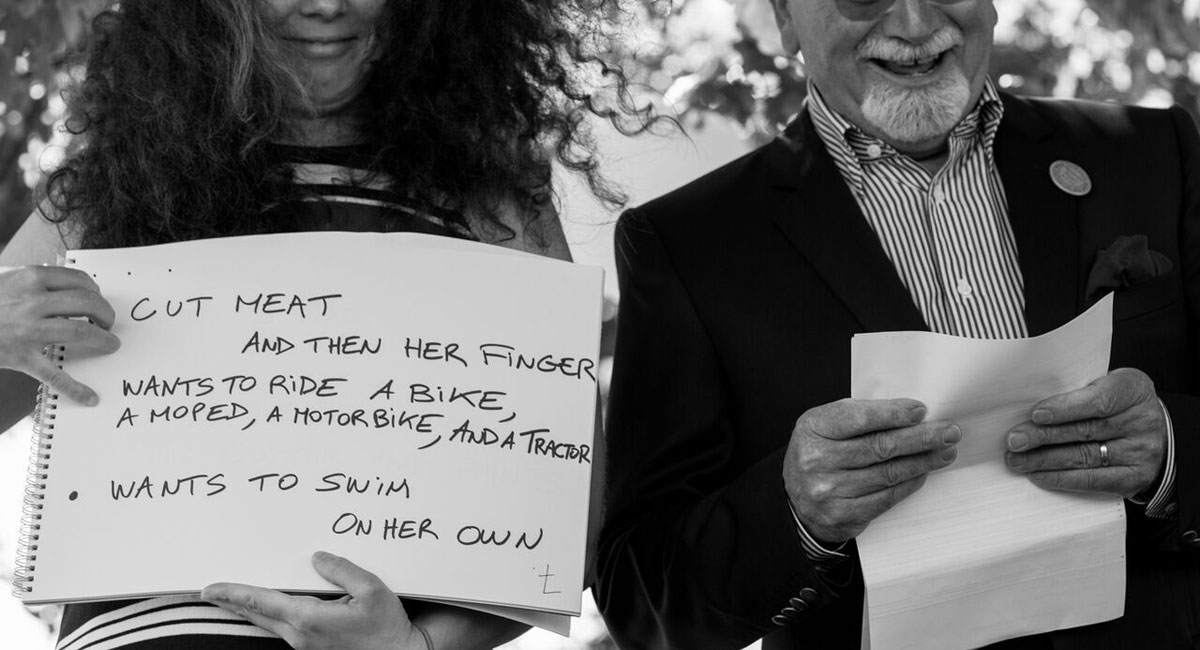 CUT MEAT
AND THEN HER FINGER
WANTS TO RIDE A BIKE,
A MOPED, A MOTORBIKE, AND A TRACTOR
• WANTS TO SWIM
ON HER OWN
t